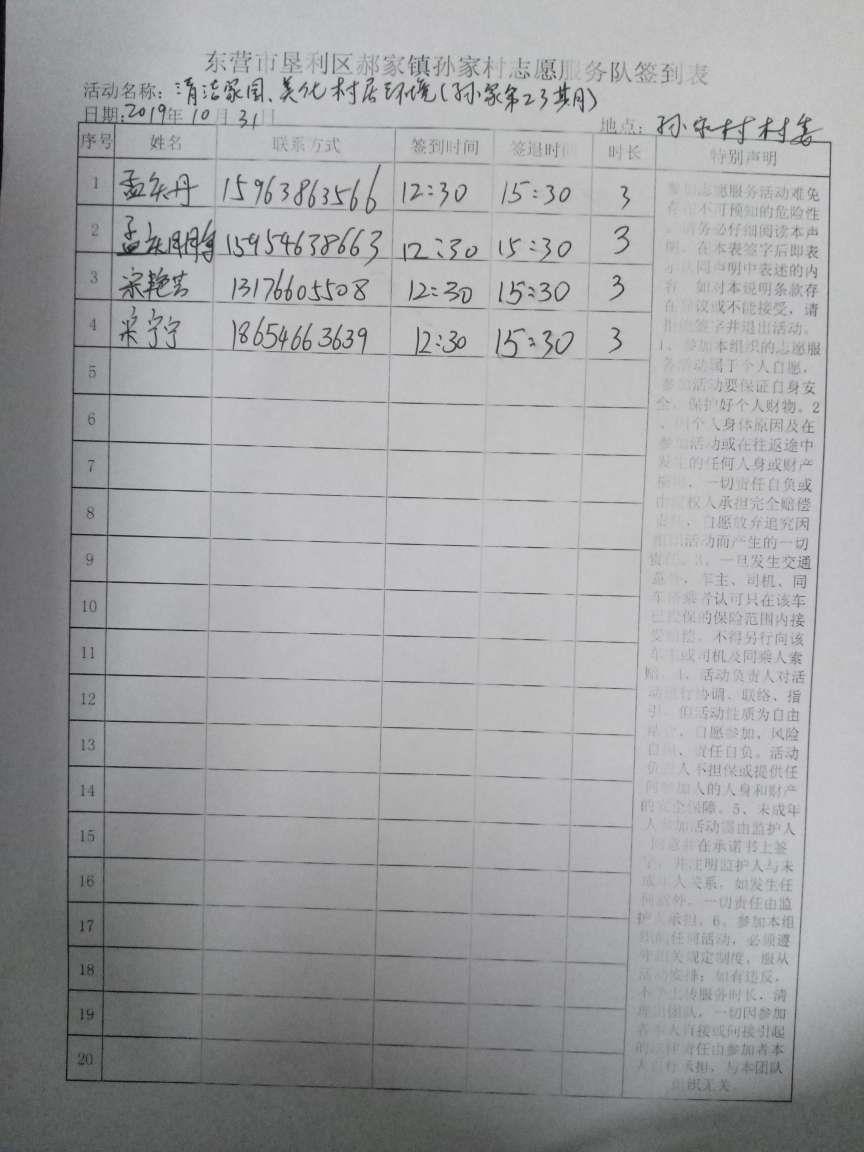 东营市垦利区郝家镇孙家村志愿服务队签到表
活动名称：清洁家园、美化村居环境(孙家第23期)
日期:2019年10月31日
地点：孙家村村委
序号 姓名 联系方式 签到时间 签退时间 时长 特别声明
1 孟庆丹 15963863566 12:30 15:30 3
2 孟庆 15954638663 12:30 15:30 3
3 宋艳芳 13176605508 12:30 15:30 3
4 宋宁宁 18654663639 12:30 15:30 3
5
6
7
8
9
10
11
12
13
14
15
16
17
18
19
20
参加志愿服务活动难免
存在不可预知的危险性
，请务必仔细阅读本声
明。在本表签字后即表
示认同声明中表述的内
容。如对本说明条款存
在异议或不能接受，请
拒绝签字并退出活动。
1、参加本组织的志愿服
务活动属于个人自愿，
参加活动要保证自身安
全，保护好个人财物。2
、因个人身体原因及在
参加活动或在往返途中
发生的任何人身或财产
损害，一切责任自负或
由侵权人承担完全赔偿
责任，自愿放弃追究因
组织活动而产生的一切
责任。3、一旦发生交通
意外，车主、司机、同
车搭乘者认可只在该车
已投保的保险范围内接
受赔偿，不得另行向该
车车主或司机及同乘人索
赔。4、活动负责人对活
动进行协调、联络、指
引，但活动性质为自由
组合，自愿参加、风险
自担、责任自负。活动
负责人不担保或提供任
何参加人的人身和财产
的安全保障。5、未成年
人参加活动需由监护人
同意并在承诺书上签
字，并注明监护人与未
成年人关系，如发生任
何意外，一切责任由监
护人承担。6、参加本组
织的任何活动，必须遵
守相关规定制度，服从
活动安排；如有违反，
不予上传服务时长，清
理出团队，一切因参加
者本人直接或间接引起
的法律责任由参加者本
人自行承担，与本团队
组织无关。